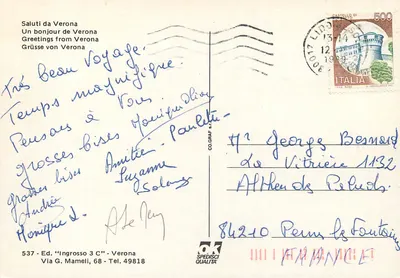 Saluti da Verona
Un bonjour de Verona
Greetings from Verona
Grüsse von Verona
Très beau voyage.
Temps magnifique.
Pensons à Vous
grosses bises Monique
Grosses bises Amitiés Paulette
André Suzanne
Monique L. Solange
537 - Ed. "Ingrosso 3 C" - Verona
Via G. Mameli, 68 - Tel. 49818
SPEDISCI
QUALITÀ
500
ITALIA
13-14
12
Mr George Besnard
La Vitrière 1132
Althen des Paluds
84210 Pernes les Fontaines
FRANCE